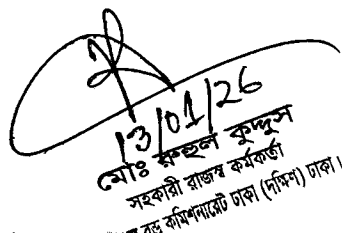 13/01/26
মোঃ রুহুল কুদ্দুস
সহকারী রাজস্ব কর্মকর্তা
বন্ড কমিশনারেট ঢাকা (দক্ষিণ) ঢাকা।